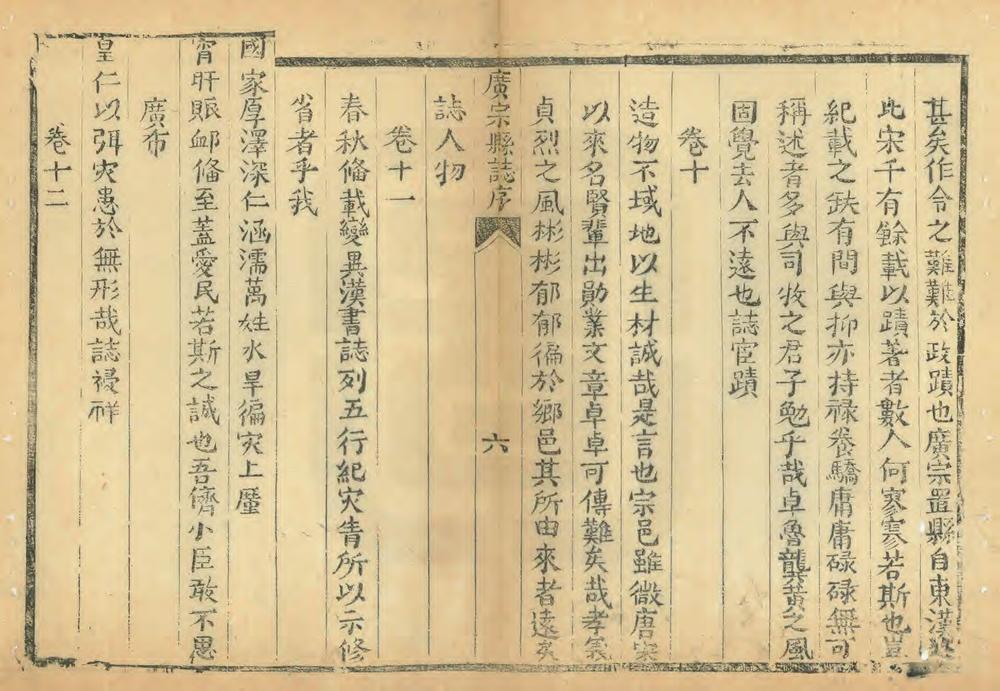 甚矣作令之難難於政蹟也廣宗置縣自東漢
此宋千有餘載以蹟著者數人何寥寥若斯也豈
紀載之缺有間與抑亦持祿養驕庸庸碌碌無可
稱述者多與司牧之君子勉乎哉卓魯龔黃之風
固覺去人不遠也誌宦蹟
卷十
造物不域地以生材誠哉是言也宗邑雖微唐宋
以來名賢輩出勛業文章卓卓可傳難矣哉孝義
貞烈之風彬彬郁郁徧於鄉邑其所由來者遠矣
廣宗縣誌序
六
誌人物
卷十一
春秋俻載變異漢書誌列五行紀灾眚所以示修
省者乎我
國家厚澤深仁涵濡萬姓水旱徧灾上厪
宵旰賑䘏俻至蓋愛民若斯之誠也吾儕小臣敢不愳
廣布
皇仁以弭灾患於無形哉誌祲祥
卷十二